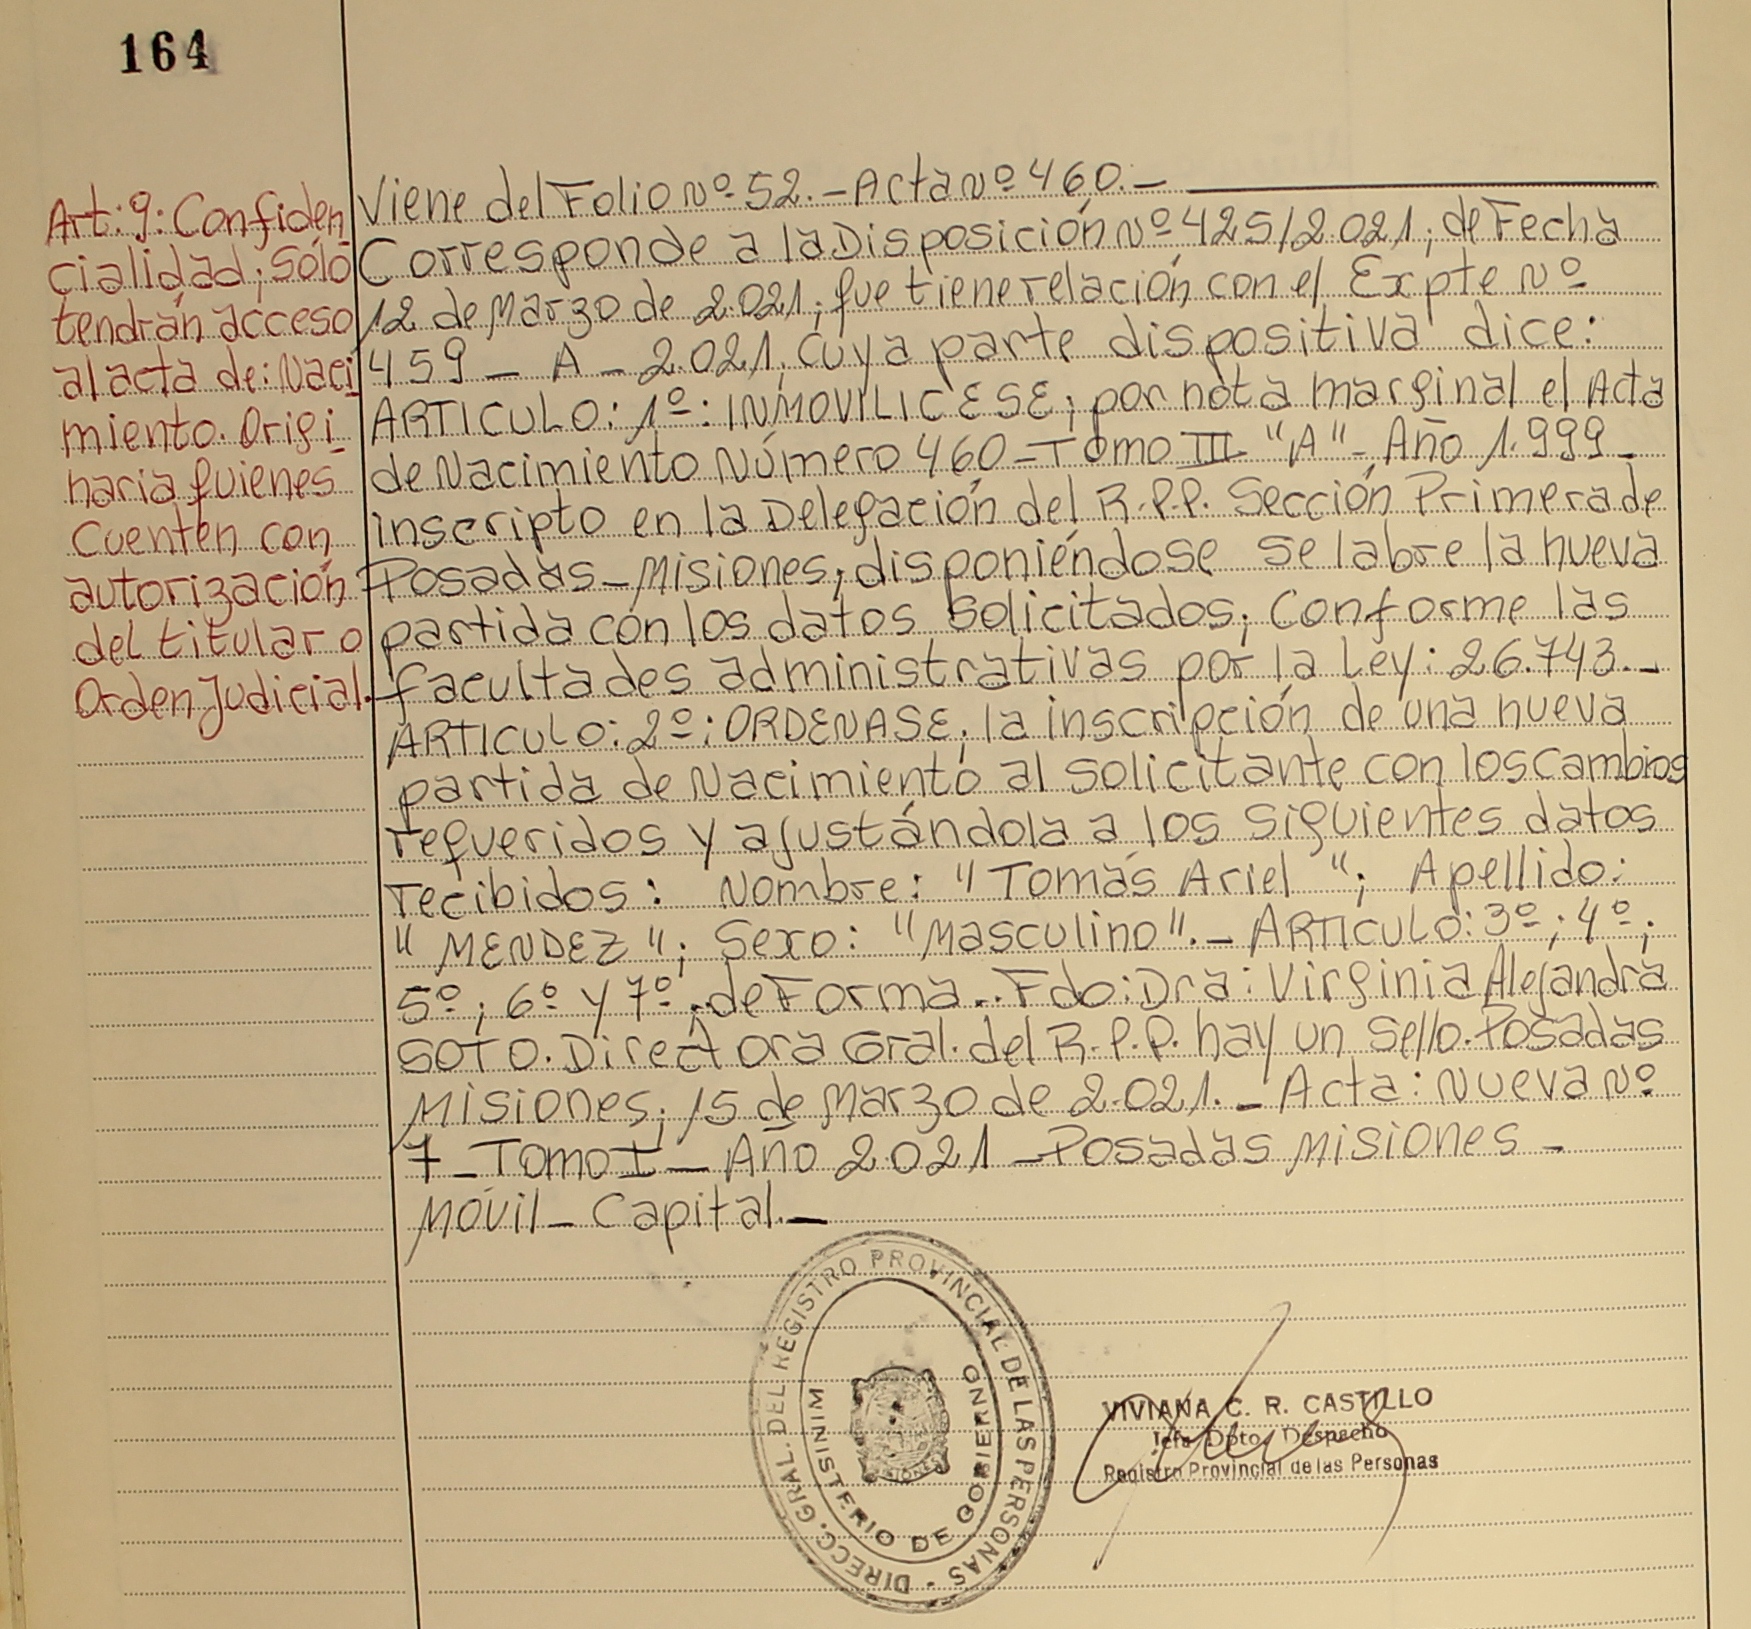 164
Art: 9: Confiden_
cialidad; sólo
tendrán acceso
al acta de: Naci_
miento. Origi_
naria quienes
Cuenten con
autorización
del titular o
Orden Judicial.
Viene del Folio Nº 52. - Acta Nº 460. -
Corresponde a la Disposición Nº 425/2.021; de Fecha
12 de Marzo de 2.021; que tiene relación con el Expte Nº
459 _ A _ 2.021, cuya parte dispositiva dice:
ARTICULO: 1º: INMOVILICESE; por nota marginal el Acta
de Nacimiento Número 460 - Tomo III "A" - Año 1.999 _
inscripto en la Delegación del R.P.P. Sección Primera de
Posadas - Misiones; disponiéndose se labre la nueva
partida con los datos solicitados; Conforme las
facultades administrativas por la Ley: 26.743. _
ARTICULO: 2º: ORDENASE; la inscripción de una nueva
partida de Nacimiento al solicitante con los cambios
requeridos y ajustándola a los siguientes datos
recibidos: Nombre: "Tomás Ariel"; Apellido:
"MENDEZ"; Sexo: "Masculino". _ ARTICULO: 3º; 4º;
5º; 6º y 7º. de Forma.. Fdo: Dra: Virginia Alejandra
SOTO. Directora Gral. del R.P.P. hay un sello. Posadas
Misiones; 15 de Marzo de 2.021. _ Acta: Nueva Nº
7 _ Tomo I _ Año 2.021 _ Posadas Misiones _
Móvil _ Capital. _
DIRECC. GRAL. DEL REGISTRO PROVINCIAL DE LAS PERSONAS -
MINISTERIO DE GOBIERNO
VIVIANA C. R. CASTILLO
Jefa Dpto. Despacho
Registro Provincial de las Personas